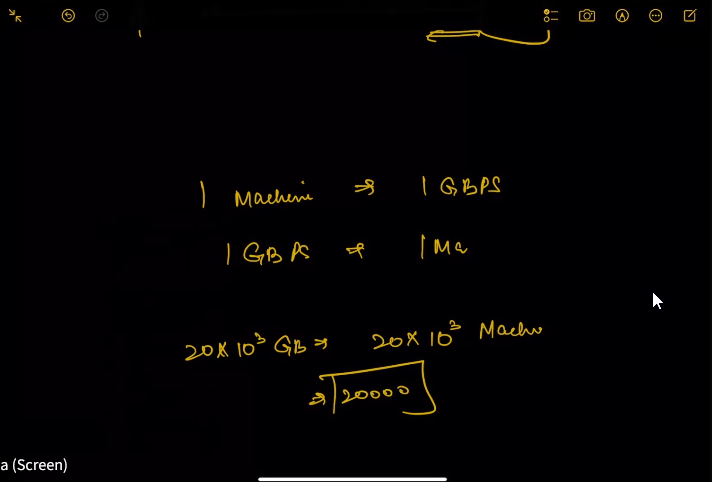 1 Machine ⇒ 1 GBPS
1 GBPS ⇒ 1 Ma
20 × 10³ GB ⇒ 20 × 10³ Machin
⇒ 20000
a (Screen)